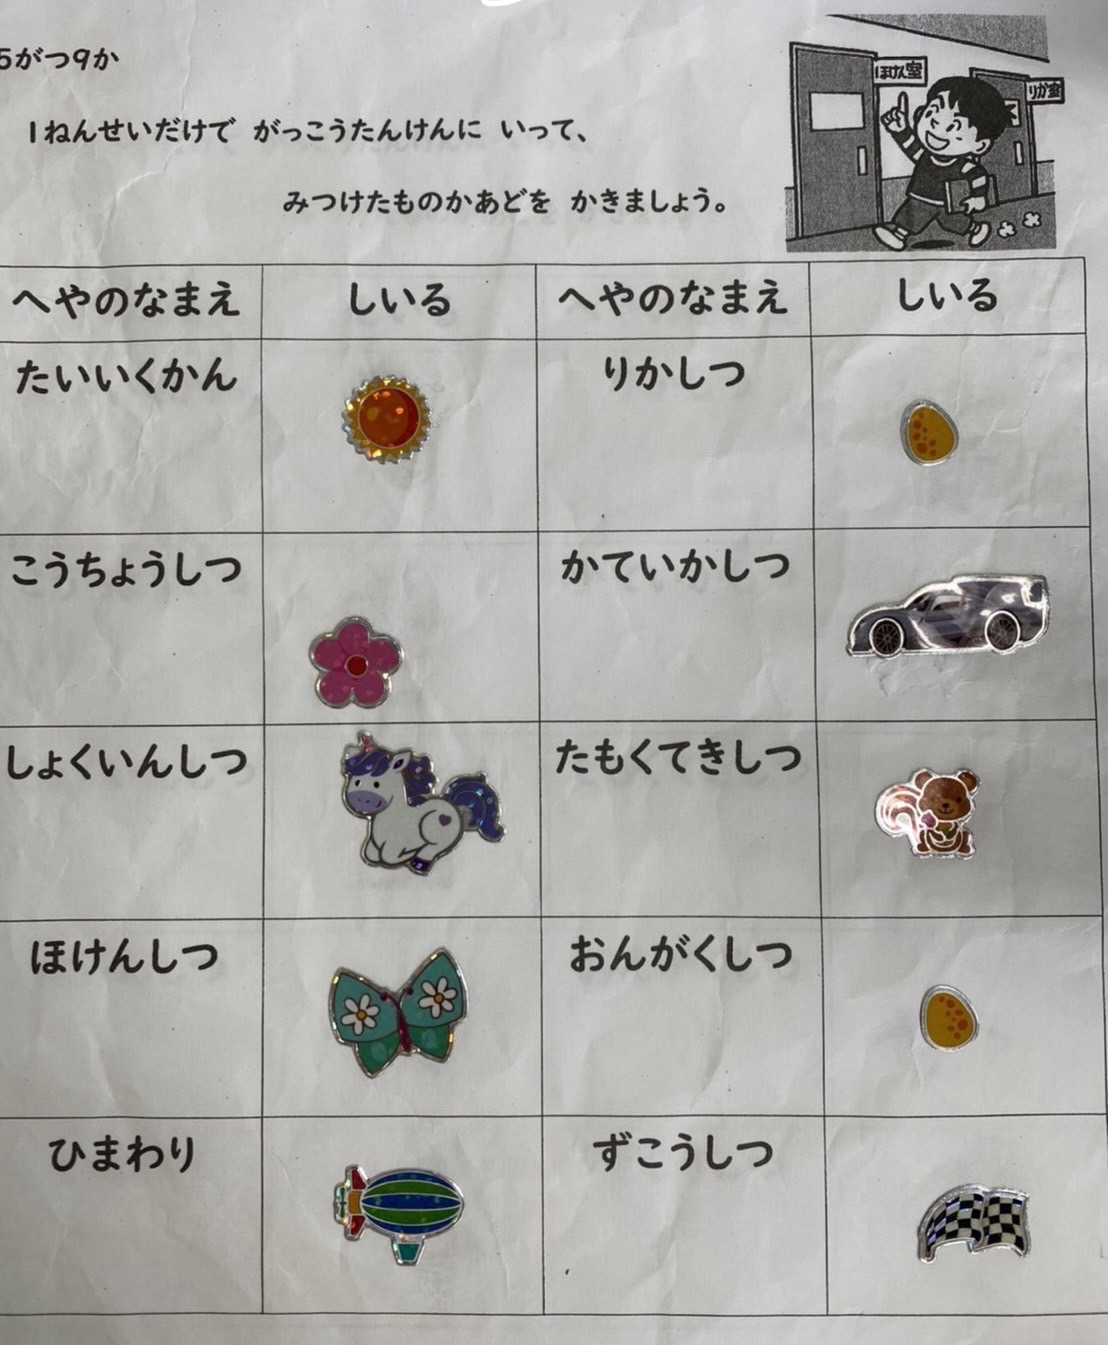 5がつ9か
1ねんせいだけで がっこうたんけんに いって、
みつけたものかあどを かきましょう。
ほけん室
りか室
へやのなまえ しいる へやのなまえ しいる
たいいくかん りかしつ
こうちょうしつ かていかしつ
しょくいんしつ たもくてきしつ
ほけんしつ おんがくしつ
ひまわり ずこうしつ